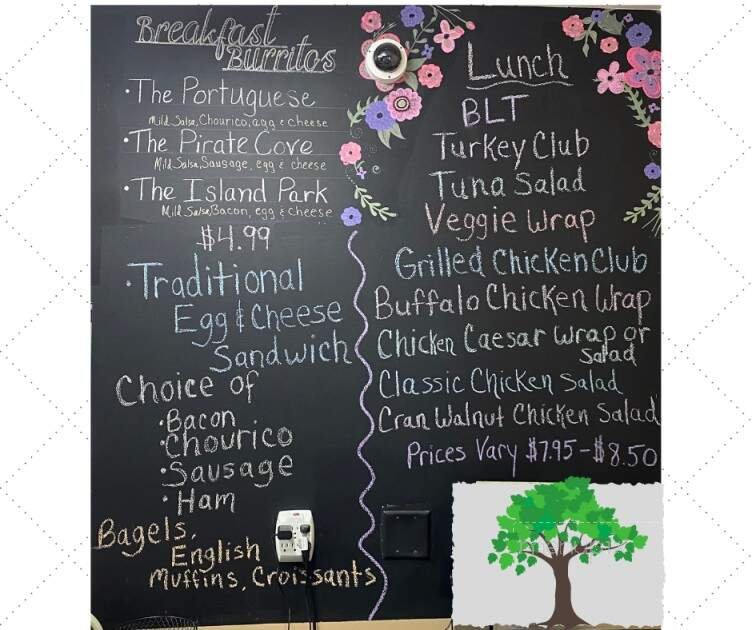 Breakfast
Burritos
·The Portuguese
Mild Salsa, Chourico, egg & cheese
·The Pirate Cove
Mild Salsa, Sausage, egg & cheese
·The Island Park
Mild Salsa, Bacon, egg & cheese
$4.99
·Traditional
Egg & Cheese
Sandwich
Choice of
·Bacon
·Chourico
·Sausage
·Ham
Bagels,
English
Muffins, Croissants
Lunch
BLT
Turkey Club
Tuna Salad
Veggie Wrap
Grilled Chicken Club
Buffalo Chicken Wrap
Chicken Caesar Wrap or
Salad
Classic Chicken Salad
Cran Walnut Chicken Salad
Prices Vary $7.95-$8.50